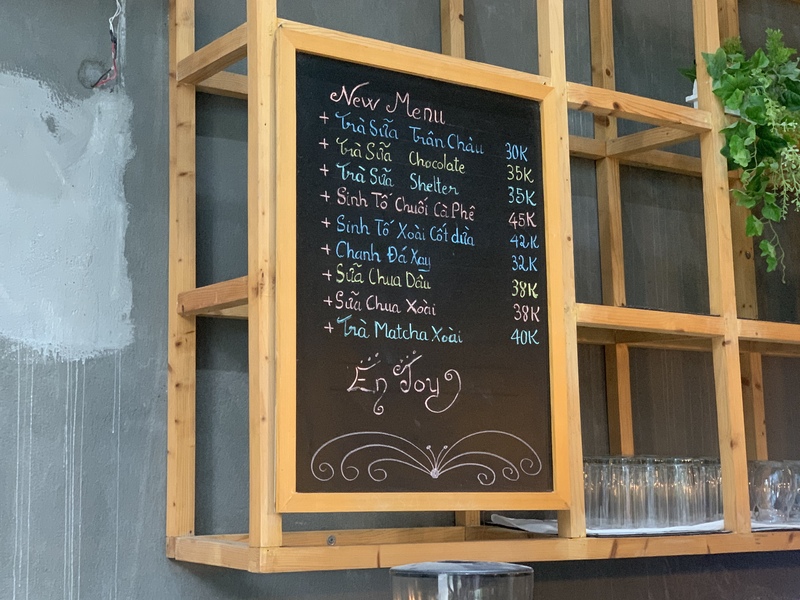 New Menu
+ Trà Sữa Trân Châu 30K
+ Trà Sữa Chocolate 35K
+ Trà Sữa Shelter 35K
+ Sinh Tố Chuối Cà Phê 45K
+ Sinh Tố Xoài Cốt dừa 42K
+ Chanh Đá Xay 32K
+ Sữa Chua Dâu 38K
+ Sữa Chua Xoài 38K
+ Trà Matcha Xoài 40K
Enjoy